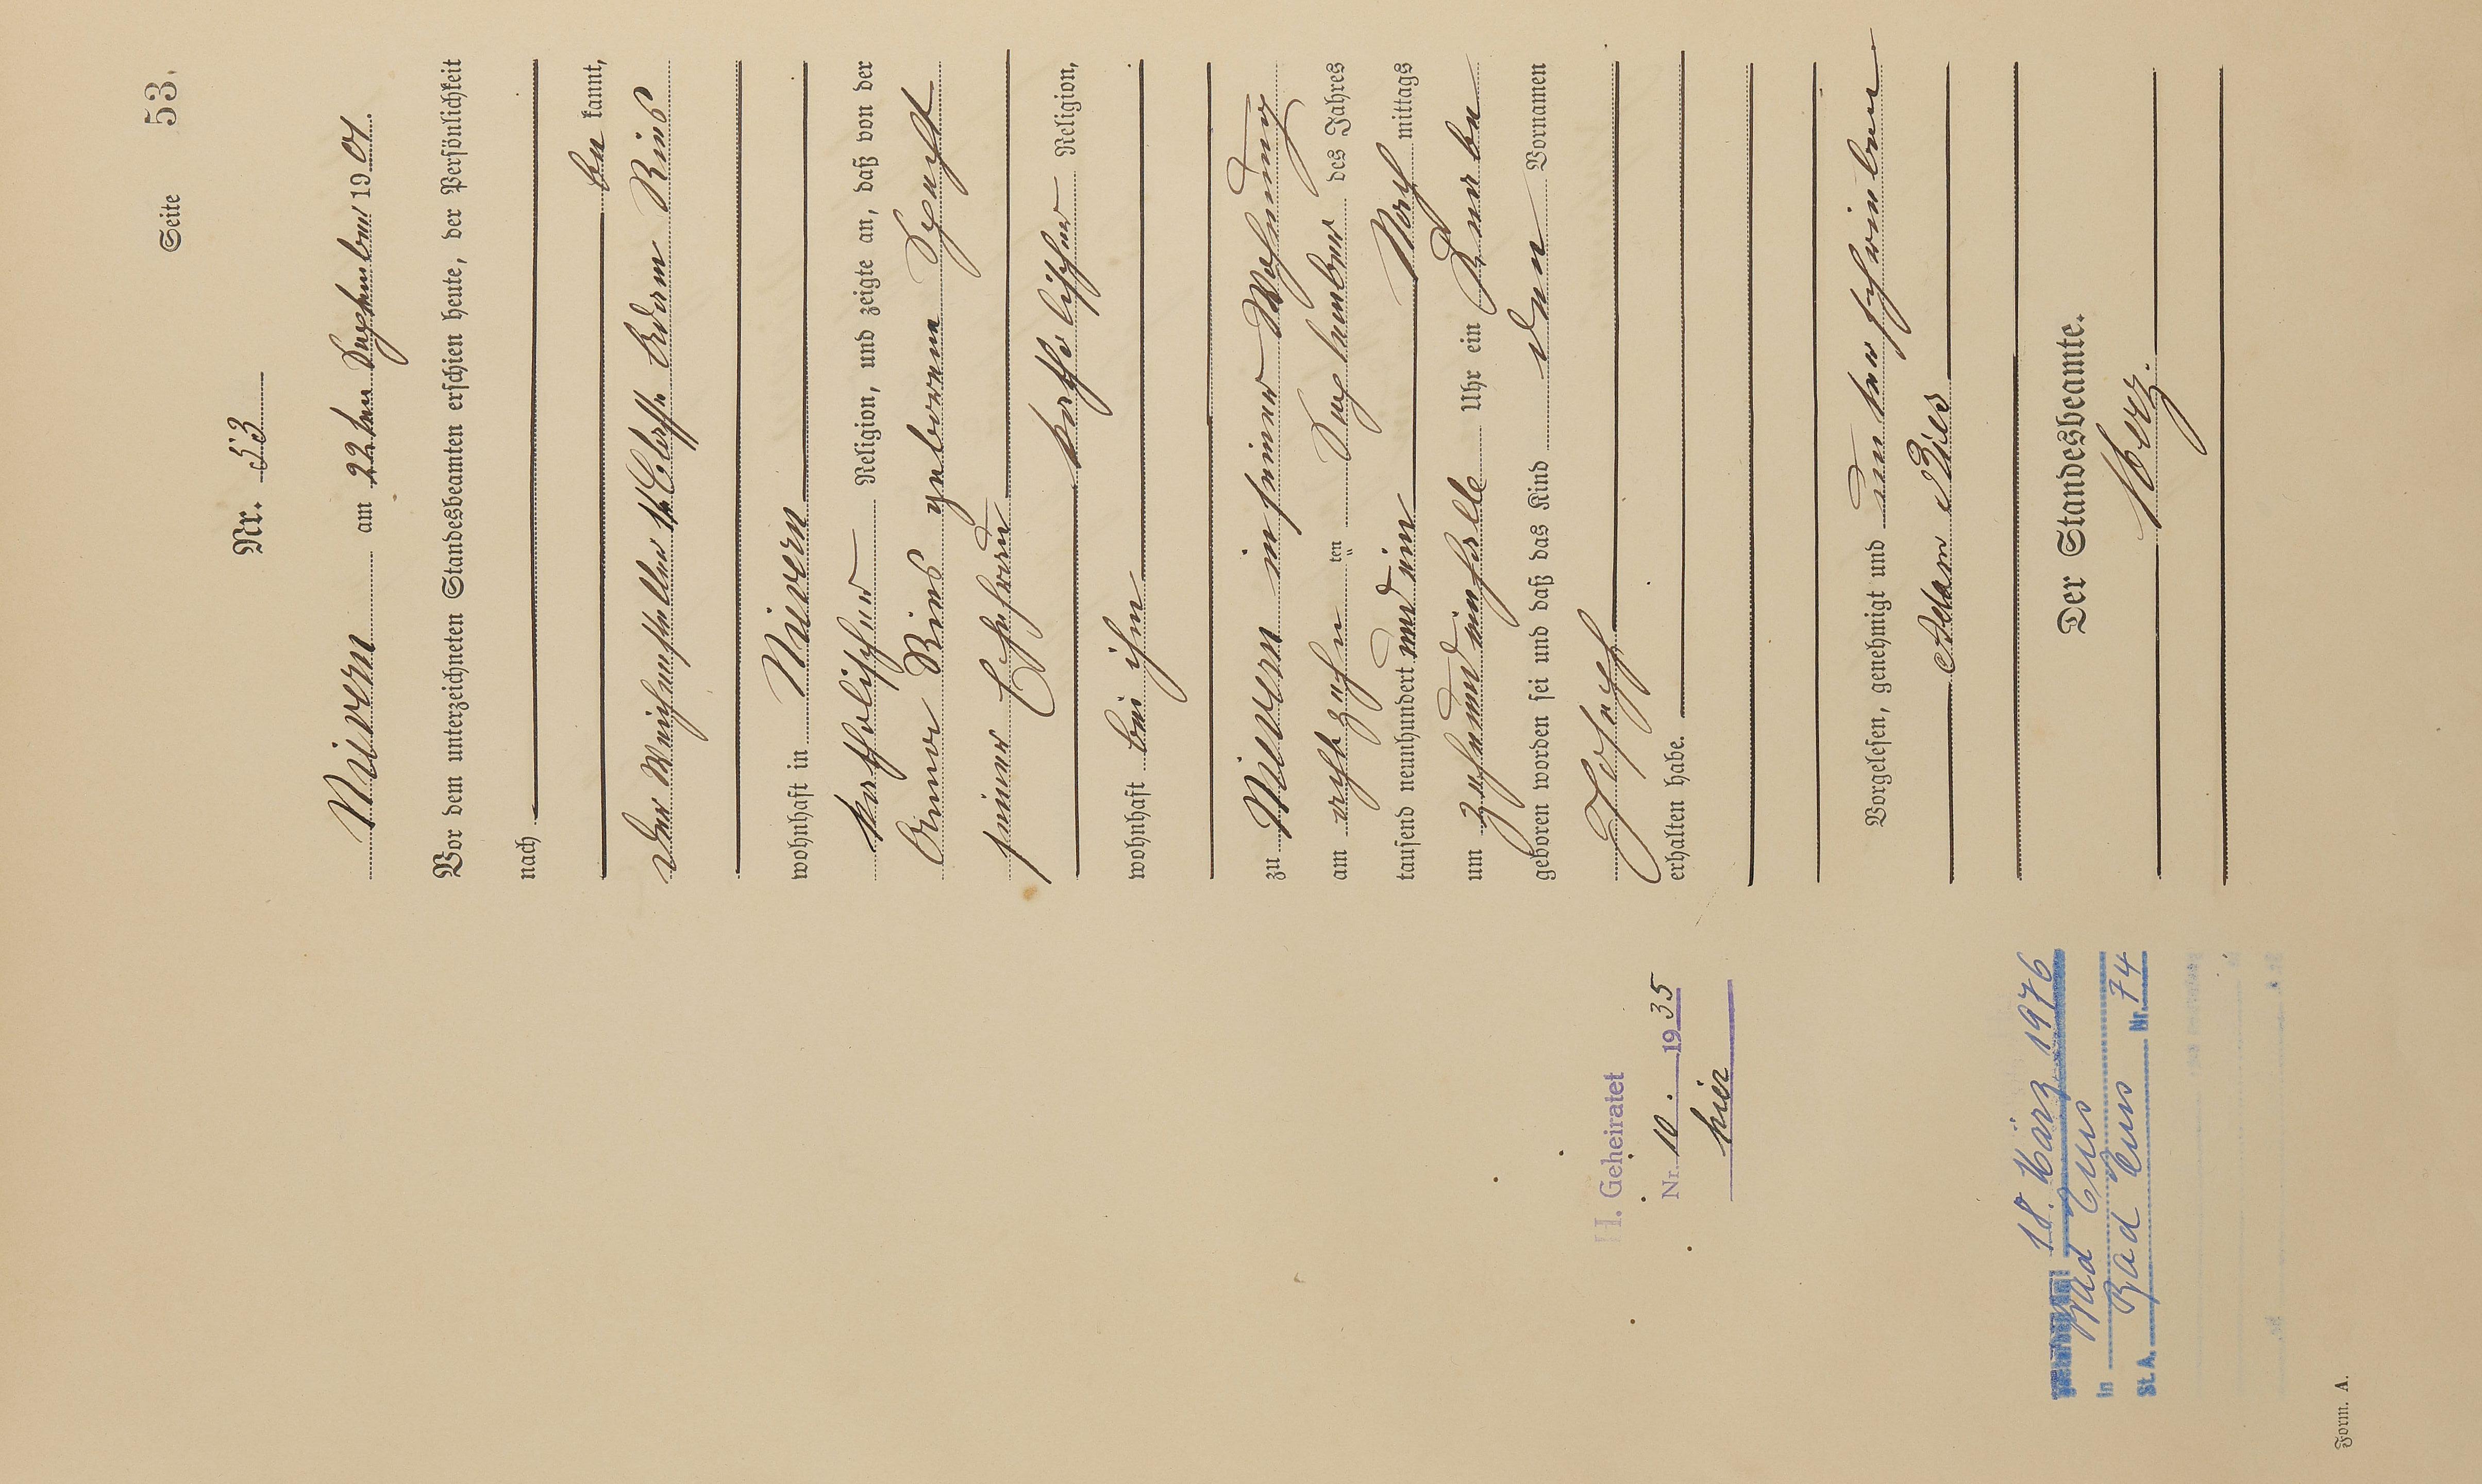 Seite 53.
Nr. 53
Nievern am 22ten September 1901.
Vor dem unterzeichneten Standesbeamten erschien heute, der Persönlichkeit
nach
be kannt,
der Weichensteller Adam Bies
wohnhaft in Nievern
katholischer Religion, und zeigte an, daß von der
Anna Bies geborene
seiner Ehefrau
katholischer Religion,
wohnhaft bei ihm
zu Nievern in seiner Wohnung
am acht zehn ten September des Jahres
tausend neunhundert und ein Nach mittags
um zehnundeinhalb Uhr ein Knabe
geboren worden sei und daß das Kind den Vornamen
Joseph
erhalten habe.
Vorgelesen, genehmigt und unterschrieben
Adam Bies
Der Standesbeamte.
Herz.
II. Geheiratet
Nr. 10. 1935
hier
Gestorben am 18. März 1976
in Bad Ems
St. A. Bad Ems Nr. 74
Form. A.